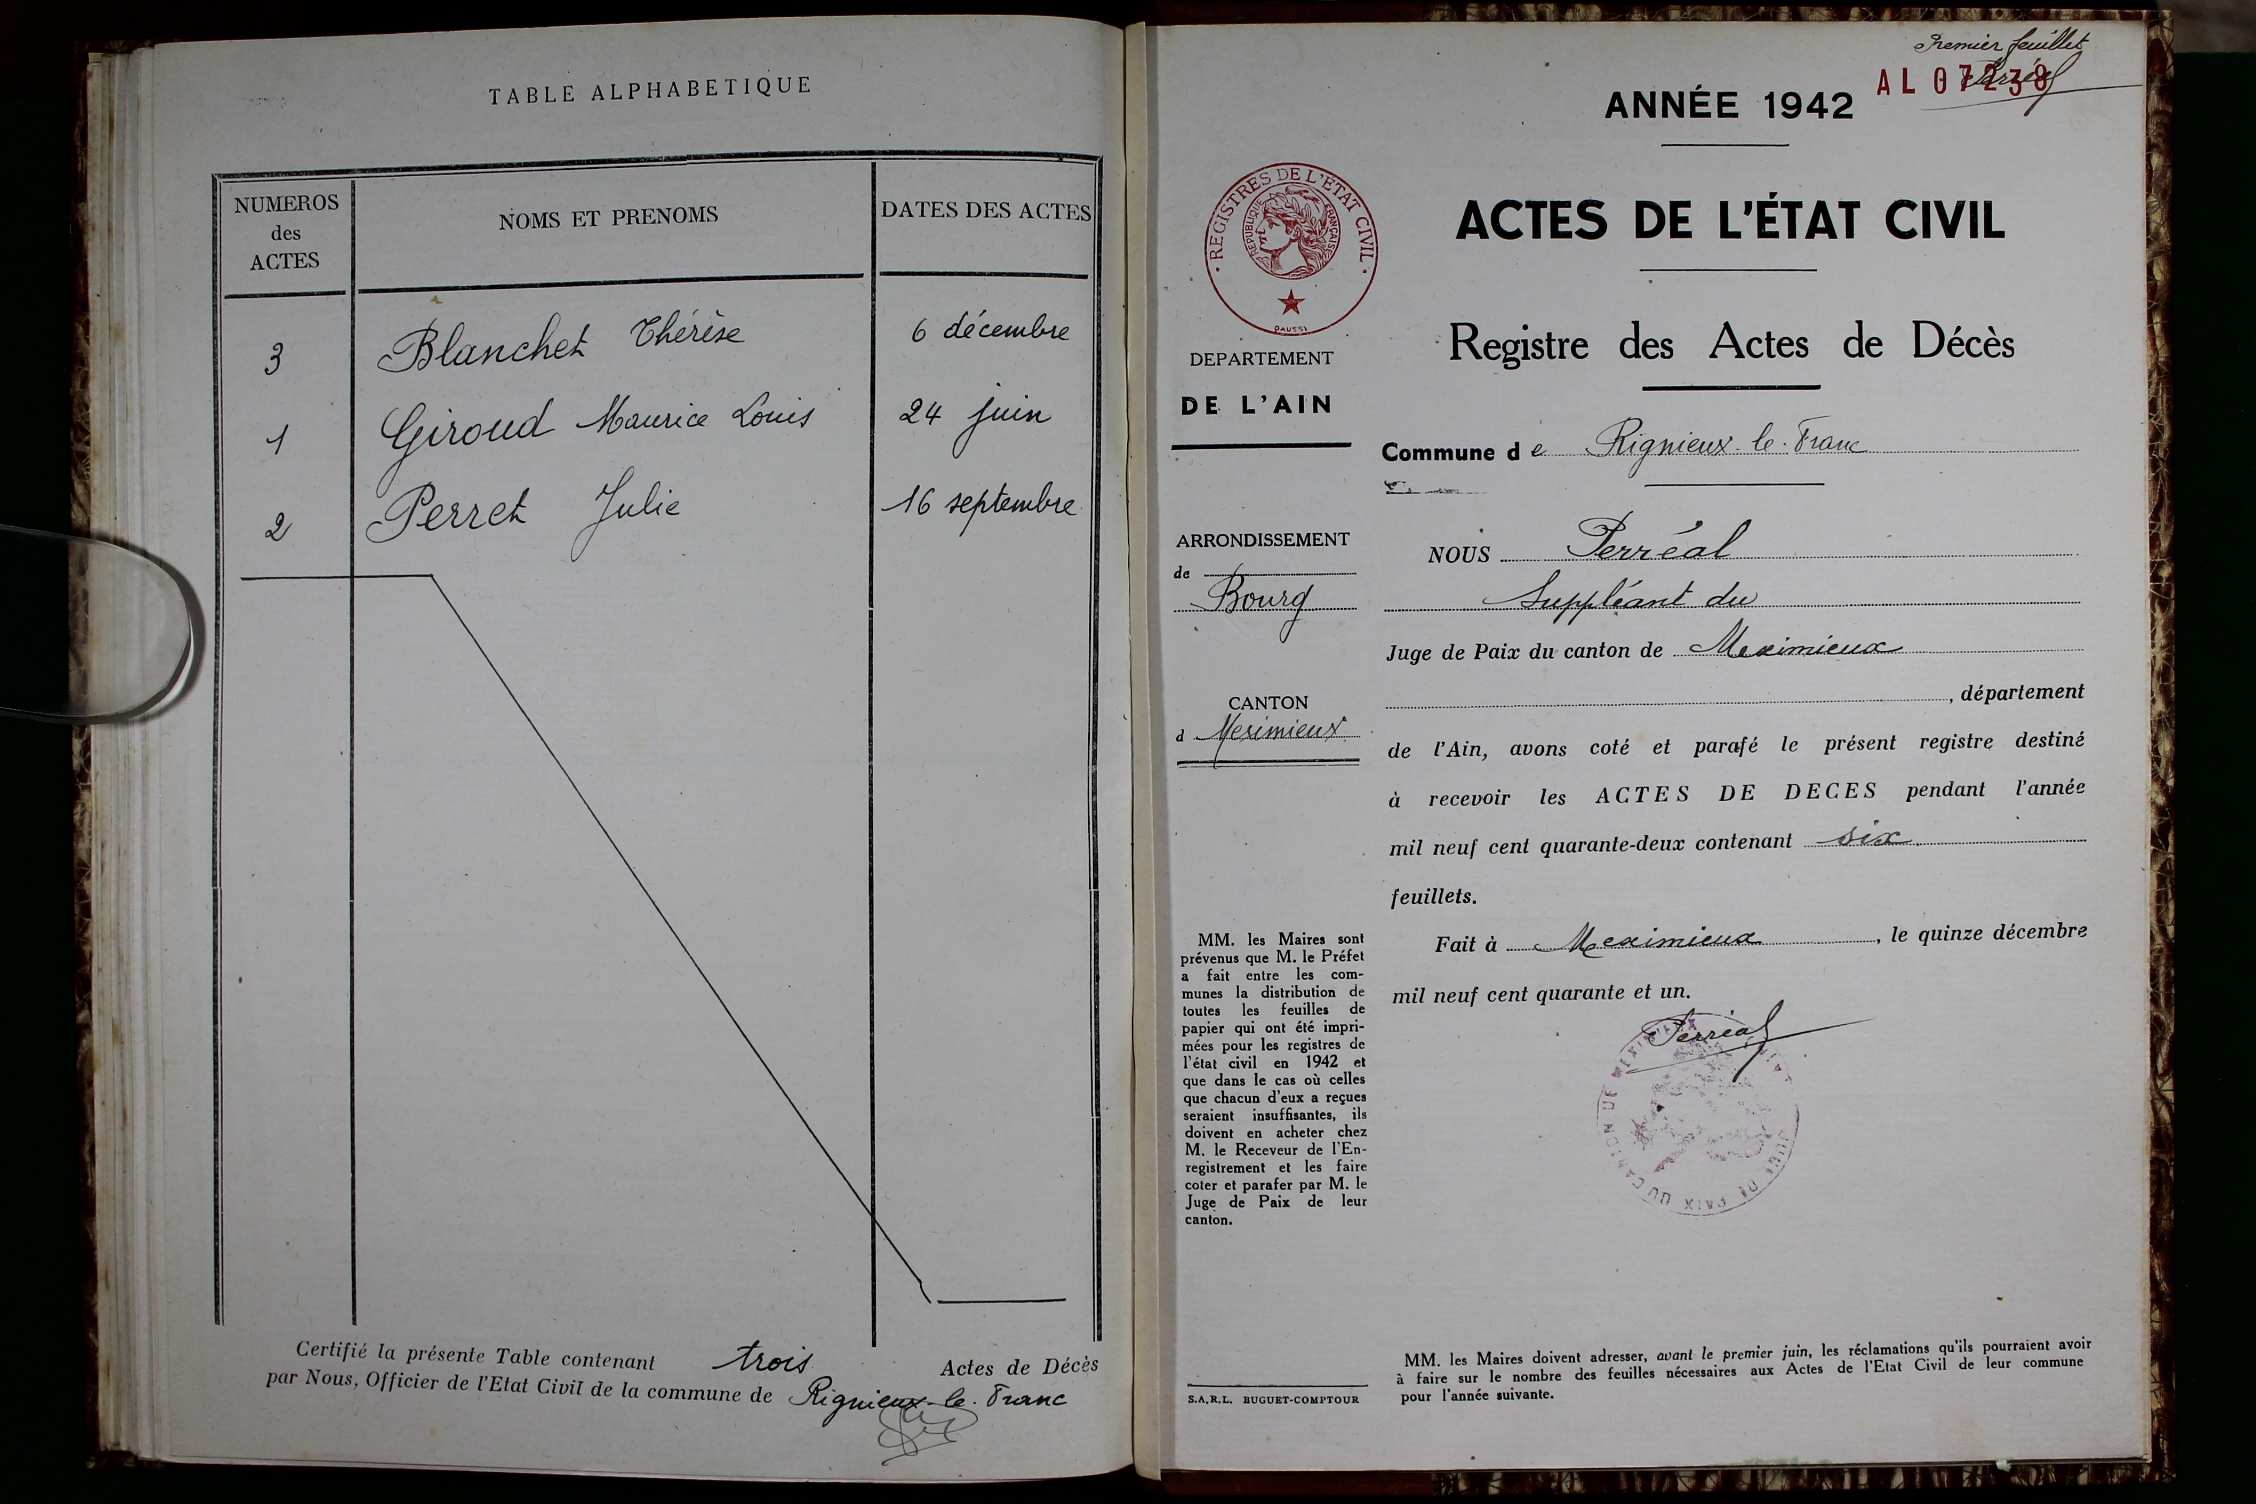 TABLE ALPHABETIQUE
NUMEROS
des
ACTES
NOMS ET PRENOMS
DATES DES ACTES
3 Blanchet Thérèse 6 décembre
1 Giroud Maurice Louis 24 juin
2 Perret Julie 16 septembre
Certifié la présente Table contenant trois Actes de Décès
par Nous, Officier de l'Etat Civil de la commune de Rignieux-le-Franc
Premier feuillet
Perréal
AL 07238
ANNÉE 1942
ACTES DE L'ÉTAT CIVIL
Registre des Actes de Décès
· REGISTRES DE L'ÉTAT CIVIL ·
RÉPUBLIQUE FRANÇAISE
DAUSSI
DEPARTEMENT
DE L'AIN
ARRONDISSEMENT
de
Bourg
CANTON
d Meximieux
MM. les Maires sont
prévenus que M. le Préfet
a fait entre les com-
munes la distribution de
toutes les feuilles de
papier qui ont été impri-
mées pour les registres de
l'état civil en 1942 et
que dans le cas où celles
que chacun d'eux a reçues
seraient insuffisantes, ils
doivent en acheter chez
M. le Receveur de l'En-
registrement et les faire
coter et parafer par M. le
Juge de Paix de leur
canton.
S.A.R.L. BUGUET-COMPTOUR
Commune d e Rignieux-le-Franc
NOUS Perréal
Suppléant du
Juge de Paix du canton de Meximieux
, département
de l'Ain, avons coté et parafé le présent registre destiné
à recevoir les ACTES DE DECES pendant l'année
mil neuf cent quarante-deux contenant six
feuillets.
Fait à Meximieux, le quinze décembre
mil neuf cent quarante et un.
Perréal
JUGE DE PAIX DU CANTON DE MEXIMIEUX
MM. les Maires doivent adresser, avant le premier juin, les réclamations qu'ils pourraient avoir
à faire sur le nombre des feuilles nécessaires aux Actes de l'Etat Civil de leur commune
pour l'année suivante.